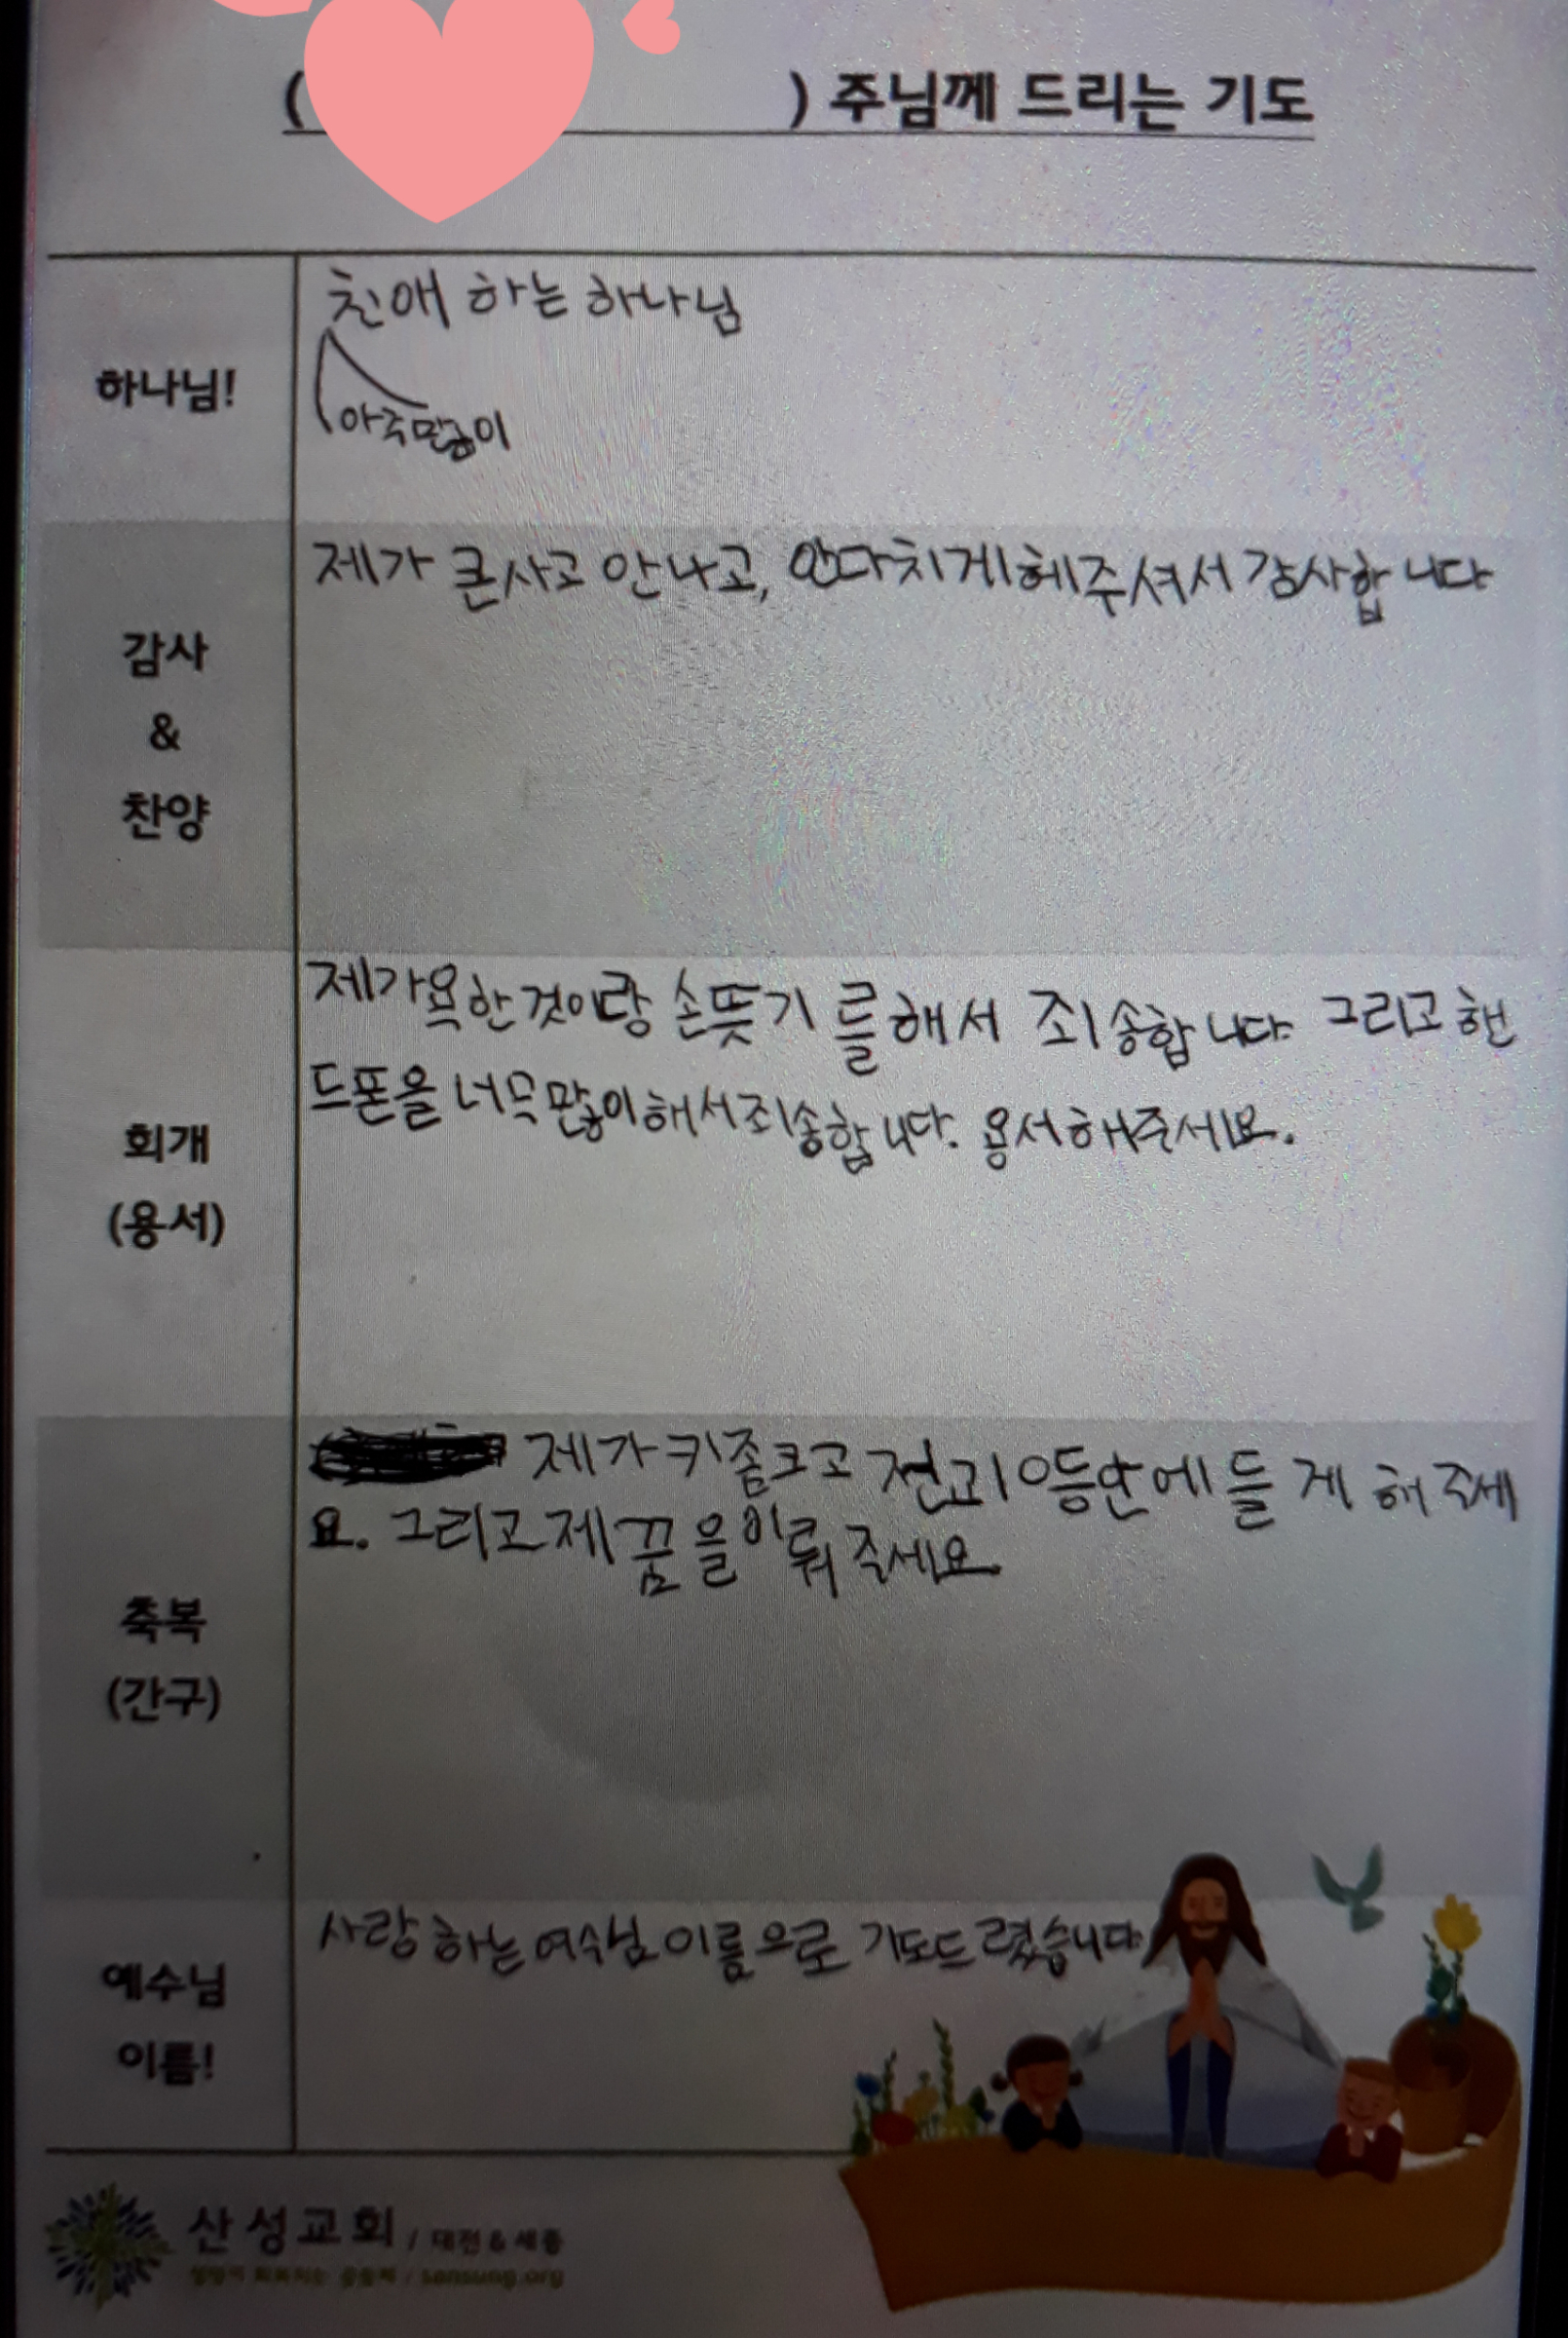 ( ) 주님께 드리는 기도
하나님!
친애 하는 하나님
아주많이
감사
&
찬양
제가 큰사고 안나고, 안다치게헤주셔서 감사합니다
회개
(용서)
제가욕한것이랑 손뜻기를해서 죄송합니다. 그리고 헨
드폰을 너무많이해서죄송합니다. 용서해주세요.
축복
(간구)
제가 키좀크고 전교1등안에 들게 해주세
요. 그리고 제 꿈을이뤄주세요.
예수님
이름!
사랑하는 여수님 이름으로 기도드렸습니다
산성교회 / 대전 & 세종
/ sansung.org